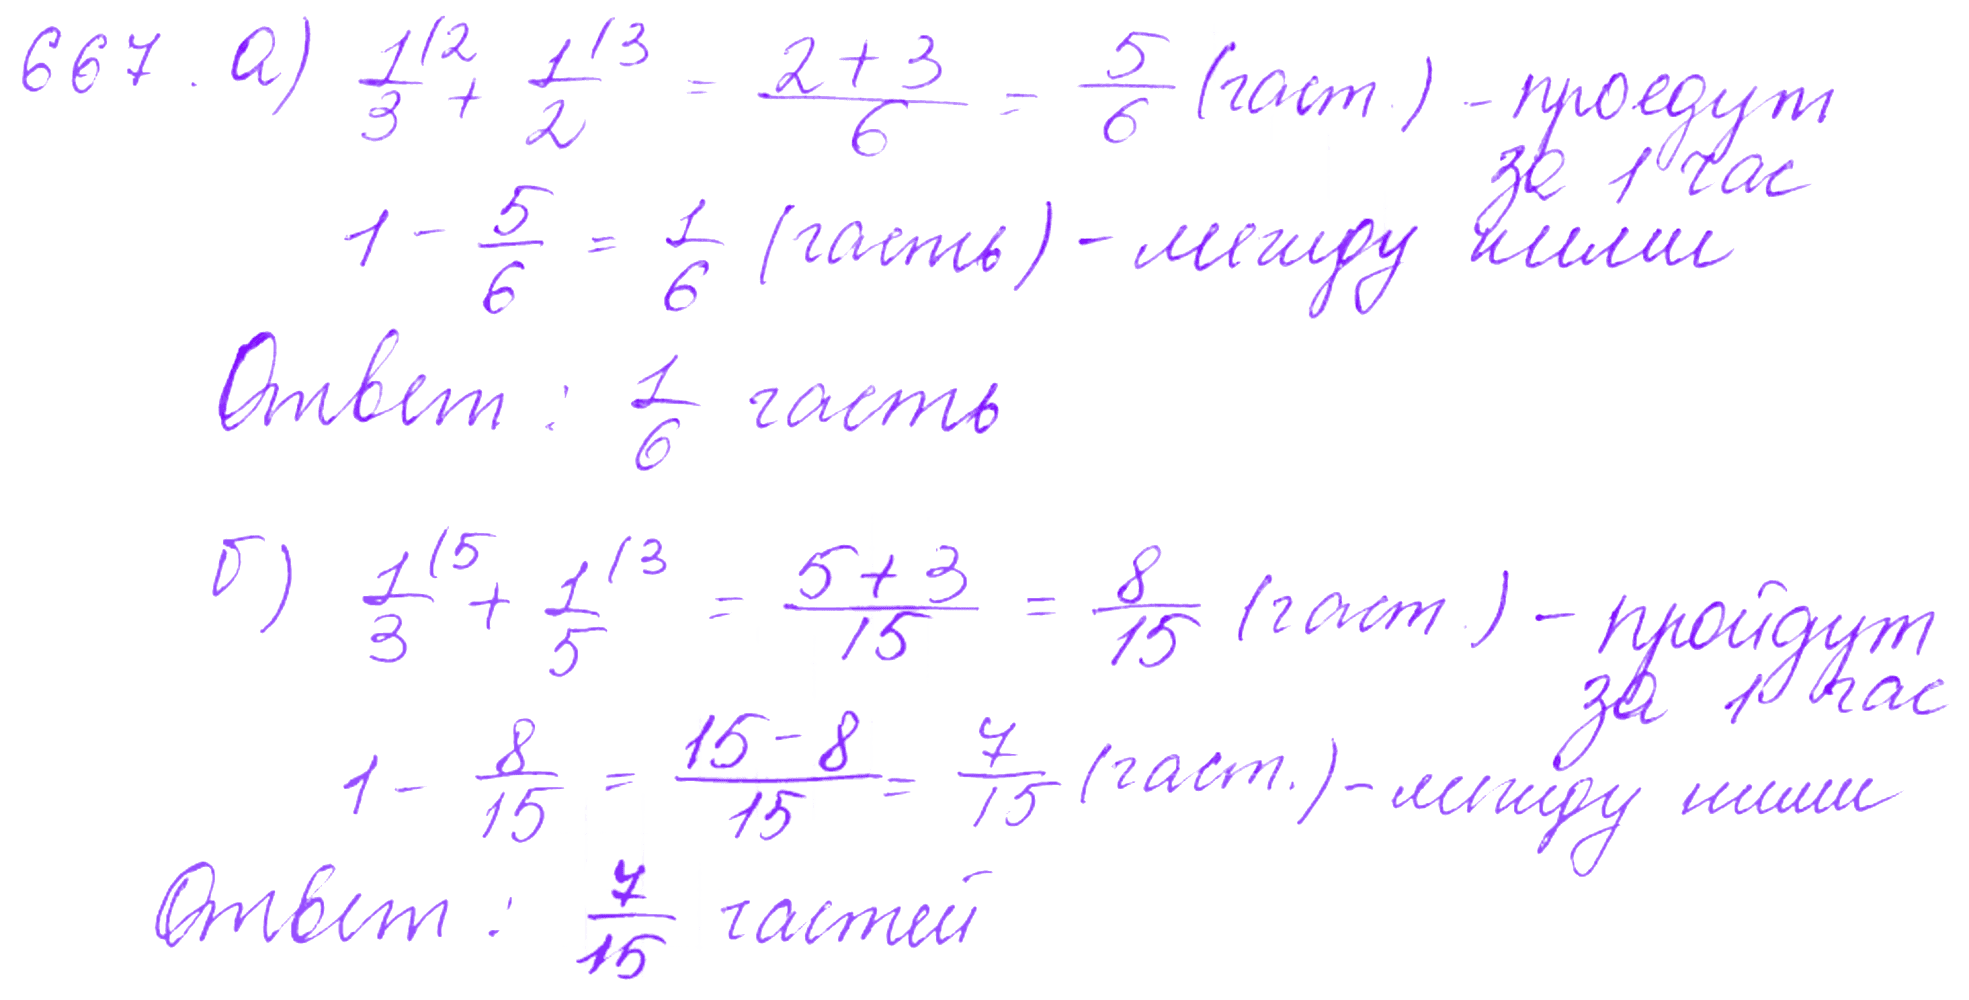 667. а) 1/3 (2 + 1/2 (3 = (2 + 3)/6 = 5/6 (част.) - проедут
за 1 час
1 - 5/6 = 1/6 (часть) - между ними
Ответ: 1/6 часть
б) 1/3 (5 + 1/5 (3 = (5 + 3)/15 = 8/15 (част.) - пройдут
за 1 час
1 - 8/15 = (15 - 8)/15 = 7/15 (част.) - между ними
Ответ: 7/15 частей